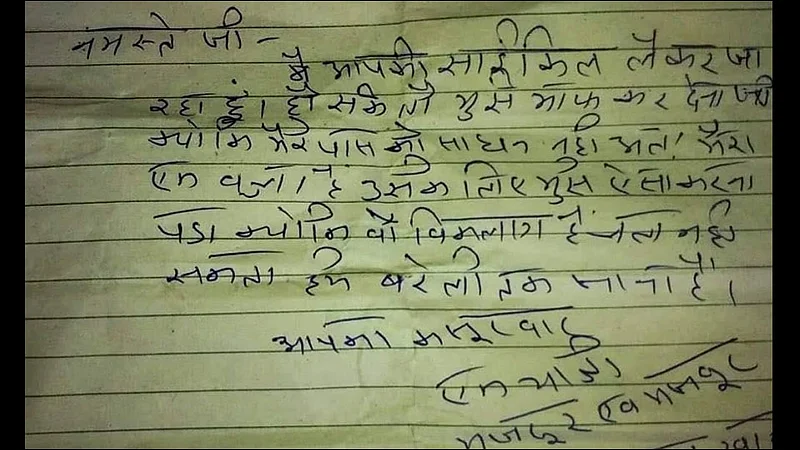 नमस्ते जी -
मैं आपकी साईकिल लेकर जा
रहा हूं। हो सके तो मुझे माफ कर देना जी
क्योकि मेरे पास को साधन नही अत। मेरा
एक बच्चा है उसके लिए मुझे ऐसा करना
पडा क्योकि वो विकलाग है चल नही
सकता हमे बरेली तक जाना है।
आपका कसूरवार
एक यात्री
मजदूर एवं मजबूर